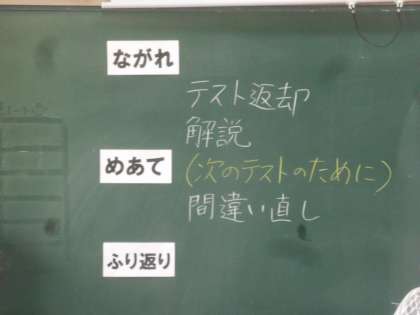 ながれ
テスト返却
解説
めあて
(次のテストのために)
間違い直し
ふり返り